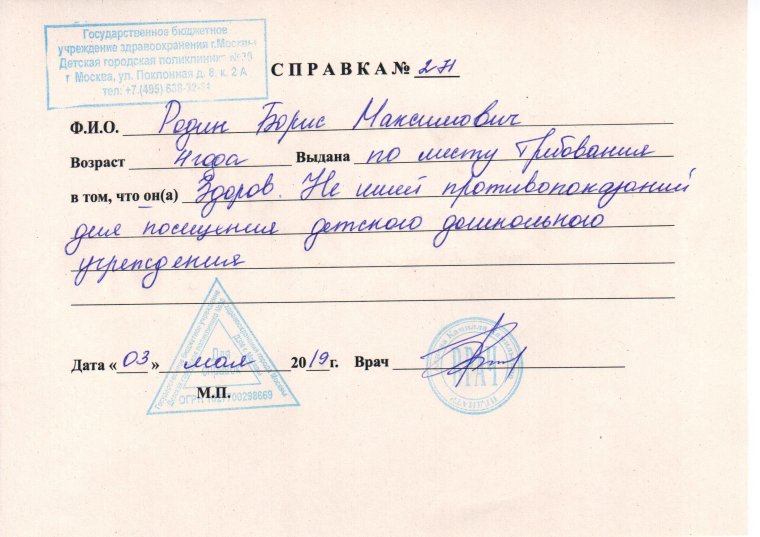 Государственное бюджетное
учреждение здравоохранения г.Москвы
Детская городская поликлиника №30
г Москва, ул. Поклонная д. 8, к. 2 А
тел: +7.(495) 638-32-
СПРАВКА №
Ф.И.О. Родин Борис Максимович
Возраст 4 года Выдана по месту Требования
в том, что он(а) Здоров. Не имей противопоказаний
для посещения детского дошкольного
учреждения
Дата «03» мая 2019 г. Врач
М.П.
ОГРН
ВРАЧ